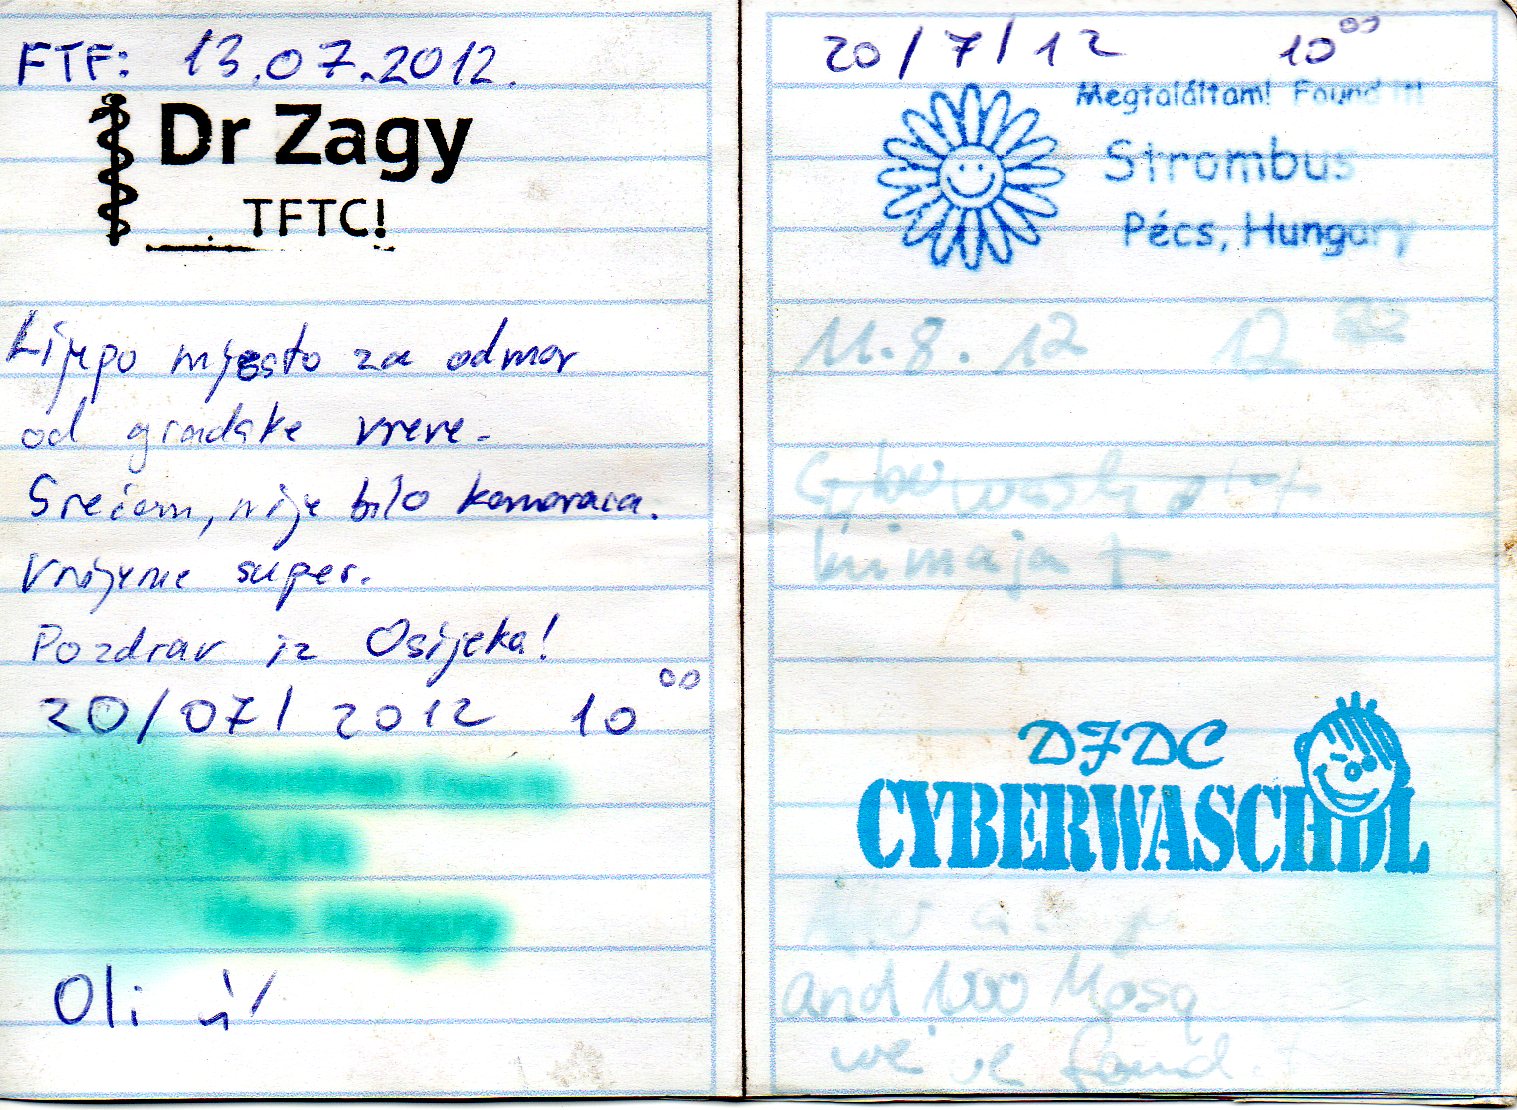 FTF: 13.07.2012.
Dr Zagy
TFTC!
Lijepo mjesto za odmor
od gradske vreve.
Srećom, nije bilo komaraca.
Vrijeme super.
Pozdrav iz Osijeka!
20/07/2012 10⁰⁰
Oli
20/7/12 10⁰⁰
Megtaláltam! Found it!
Strombus
Pécs, Hungary
11.8.12 12
kimaja +
DFDC
CYBERWASCHDL
and 1000 Mosq
we've found it